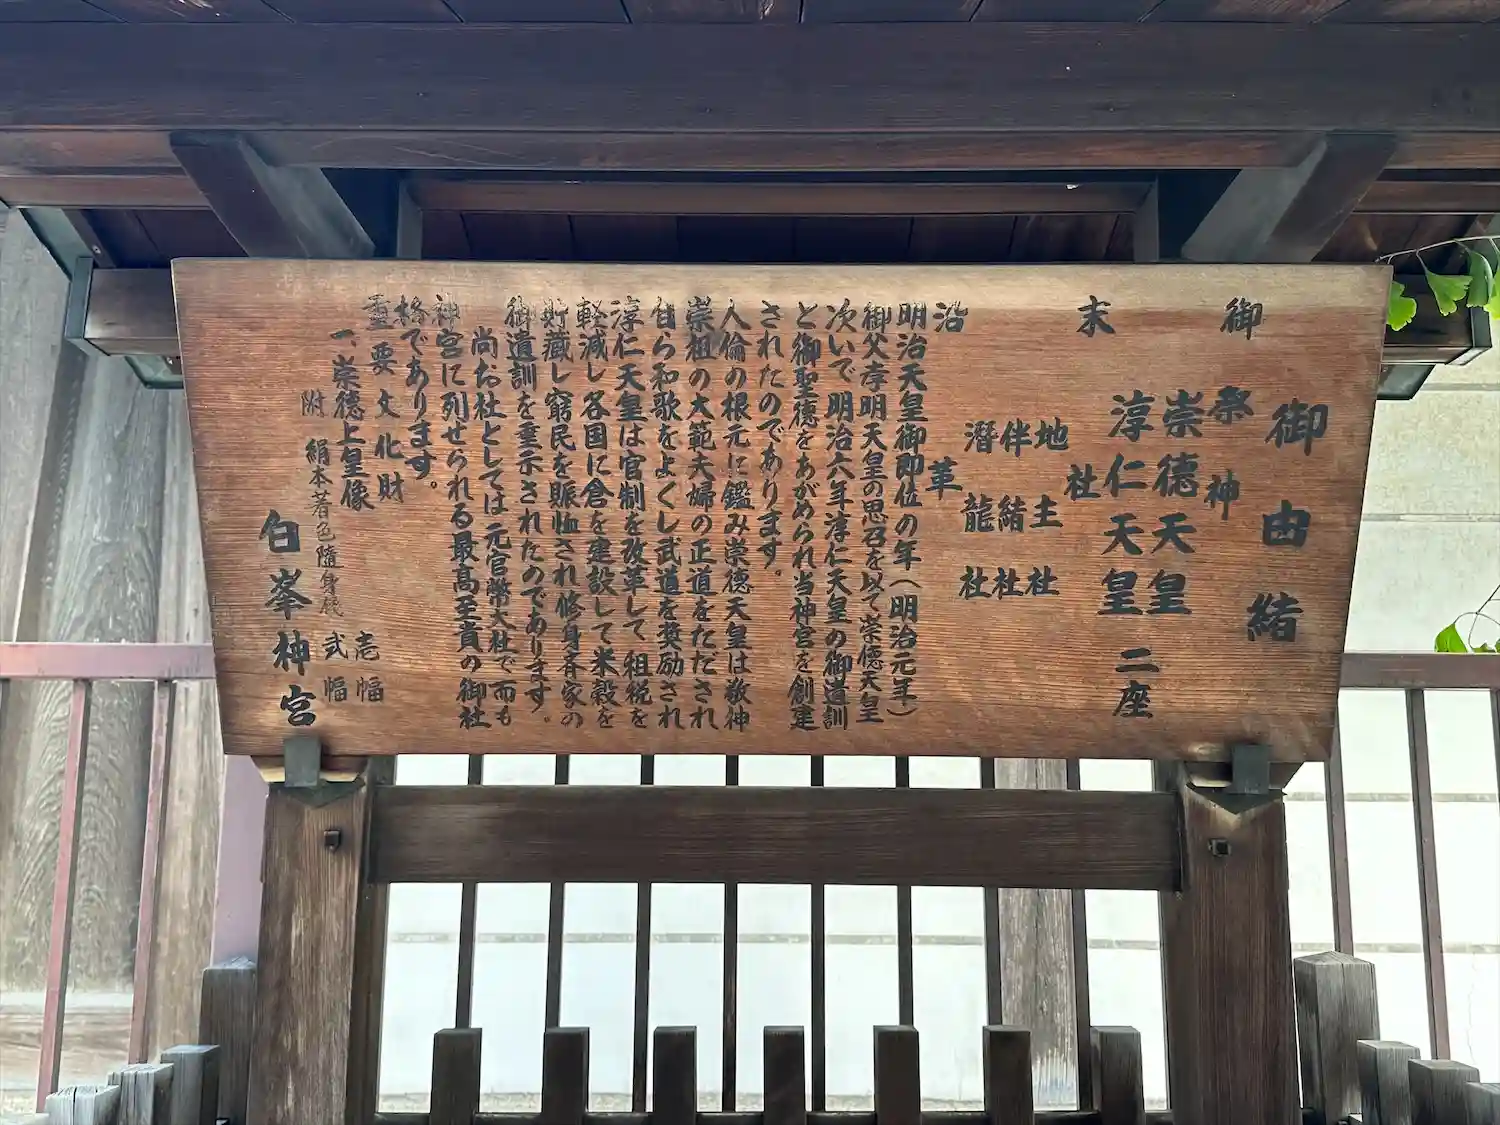 御由緒
御祭神
崇徳天皇
淳仁天皇 二座
末社
地主社
伴緒社
潜龍社
沿革
明治天皇御即位の年(明治元年)
御父孝明天皇の思召を以て崇徳天皇
次いで明治六年淳仁天皇の御遺訓
と御聖徳をあがめられ当神宮を創建
されたのであります。
人倫の根元に鑑み崇徳天皇は敬神
崇祖の大範夫婦の正道をたたされ
自ら和歌をよくし武道を奨励され
淳仁天皇は官制を改革して租税を
軽減し各国に倉を建設して米穀を
貯蔵し窮民を賑恤され修身斉家の
御遺訓を垂示されたのであります。
尚お社としては元官幣大社で而も
神宮に列せられる最高至貴の御社
格であります。
重要文化財
一、崇徳上皇像 壱幅
附 絹本著色随身像 弐幅
白峯神宮